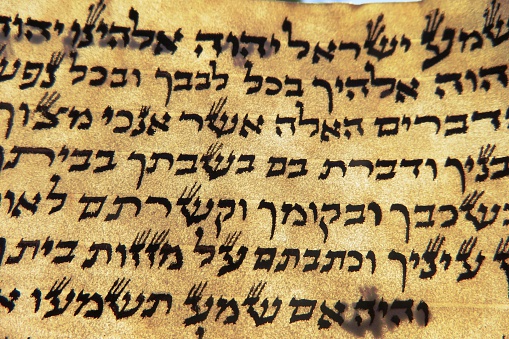 שמע ישראל יהוה אלהינו יהוה
הוה אלהיך בכל לבבך ובכל נפש
דברים האלה אשר אנכי מצוך
בניך ודברת בם בשבתך בביתך
בשכבך ובקומך וקשרתם לאו
עיניך וכתבתם על מזזות ביתך
והיה אם שמע תשמעו א